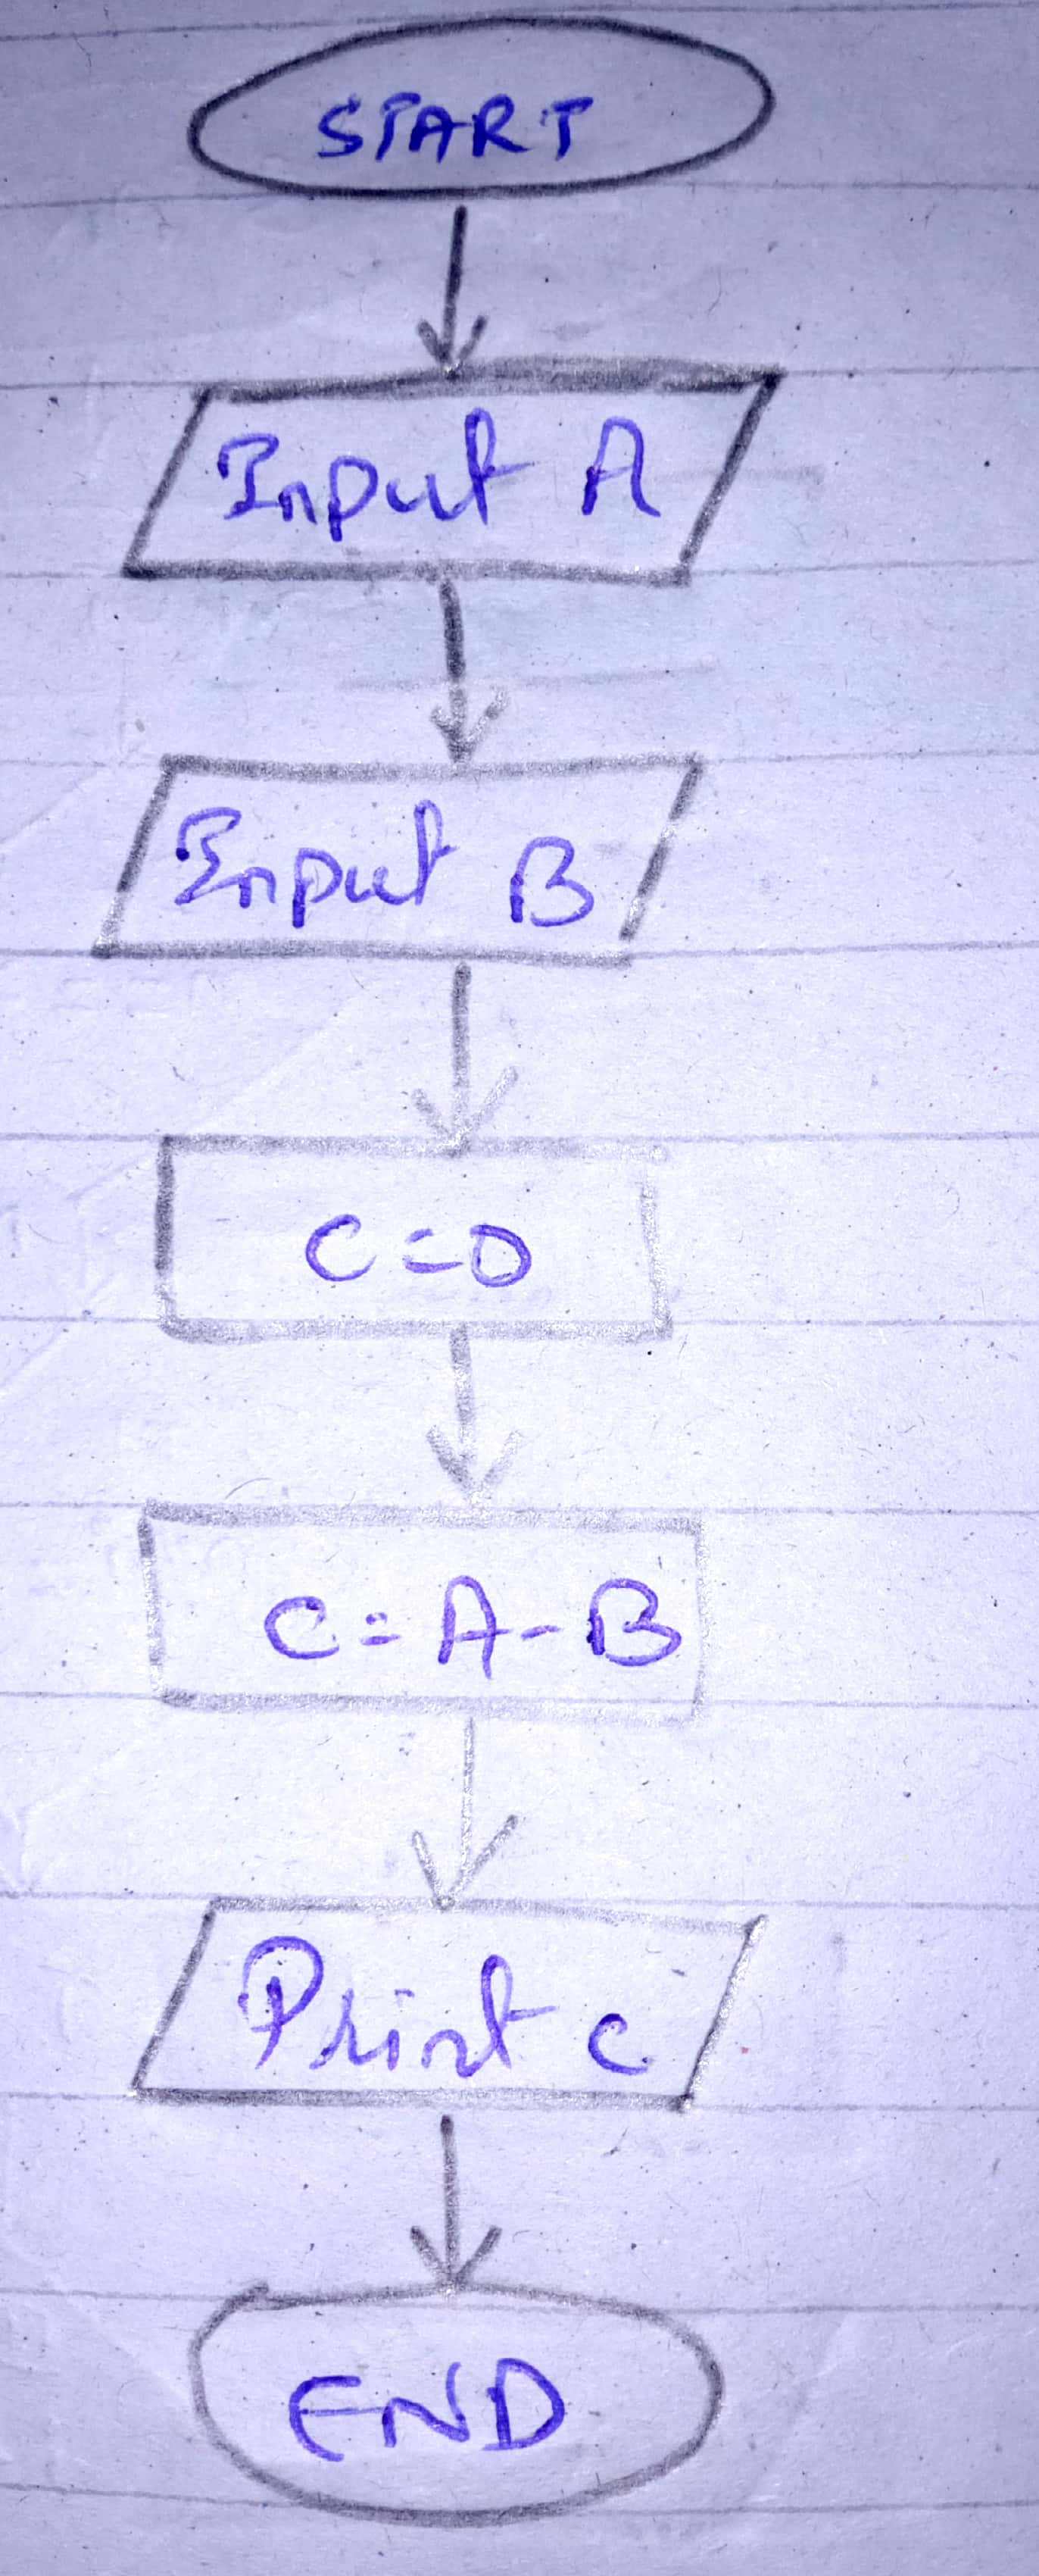 START
Input A
Input B
C=0
C=A-B
Print C
END